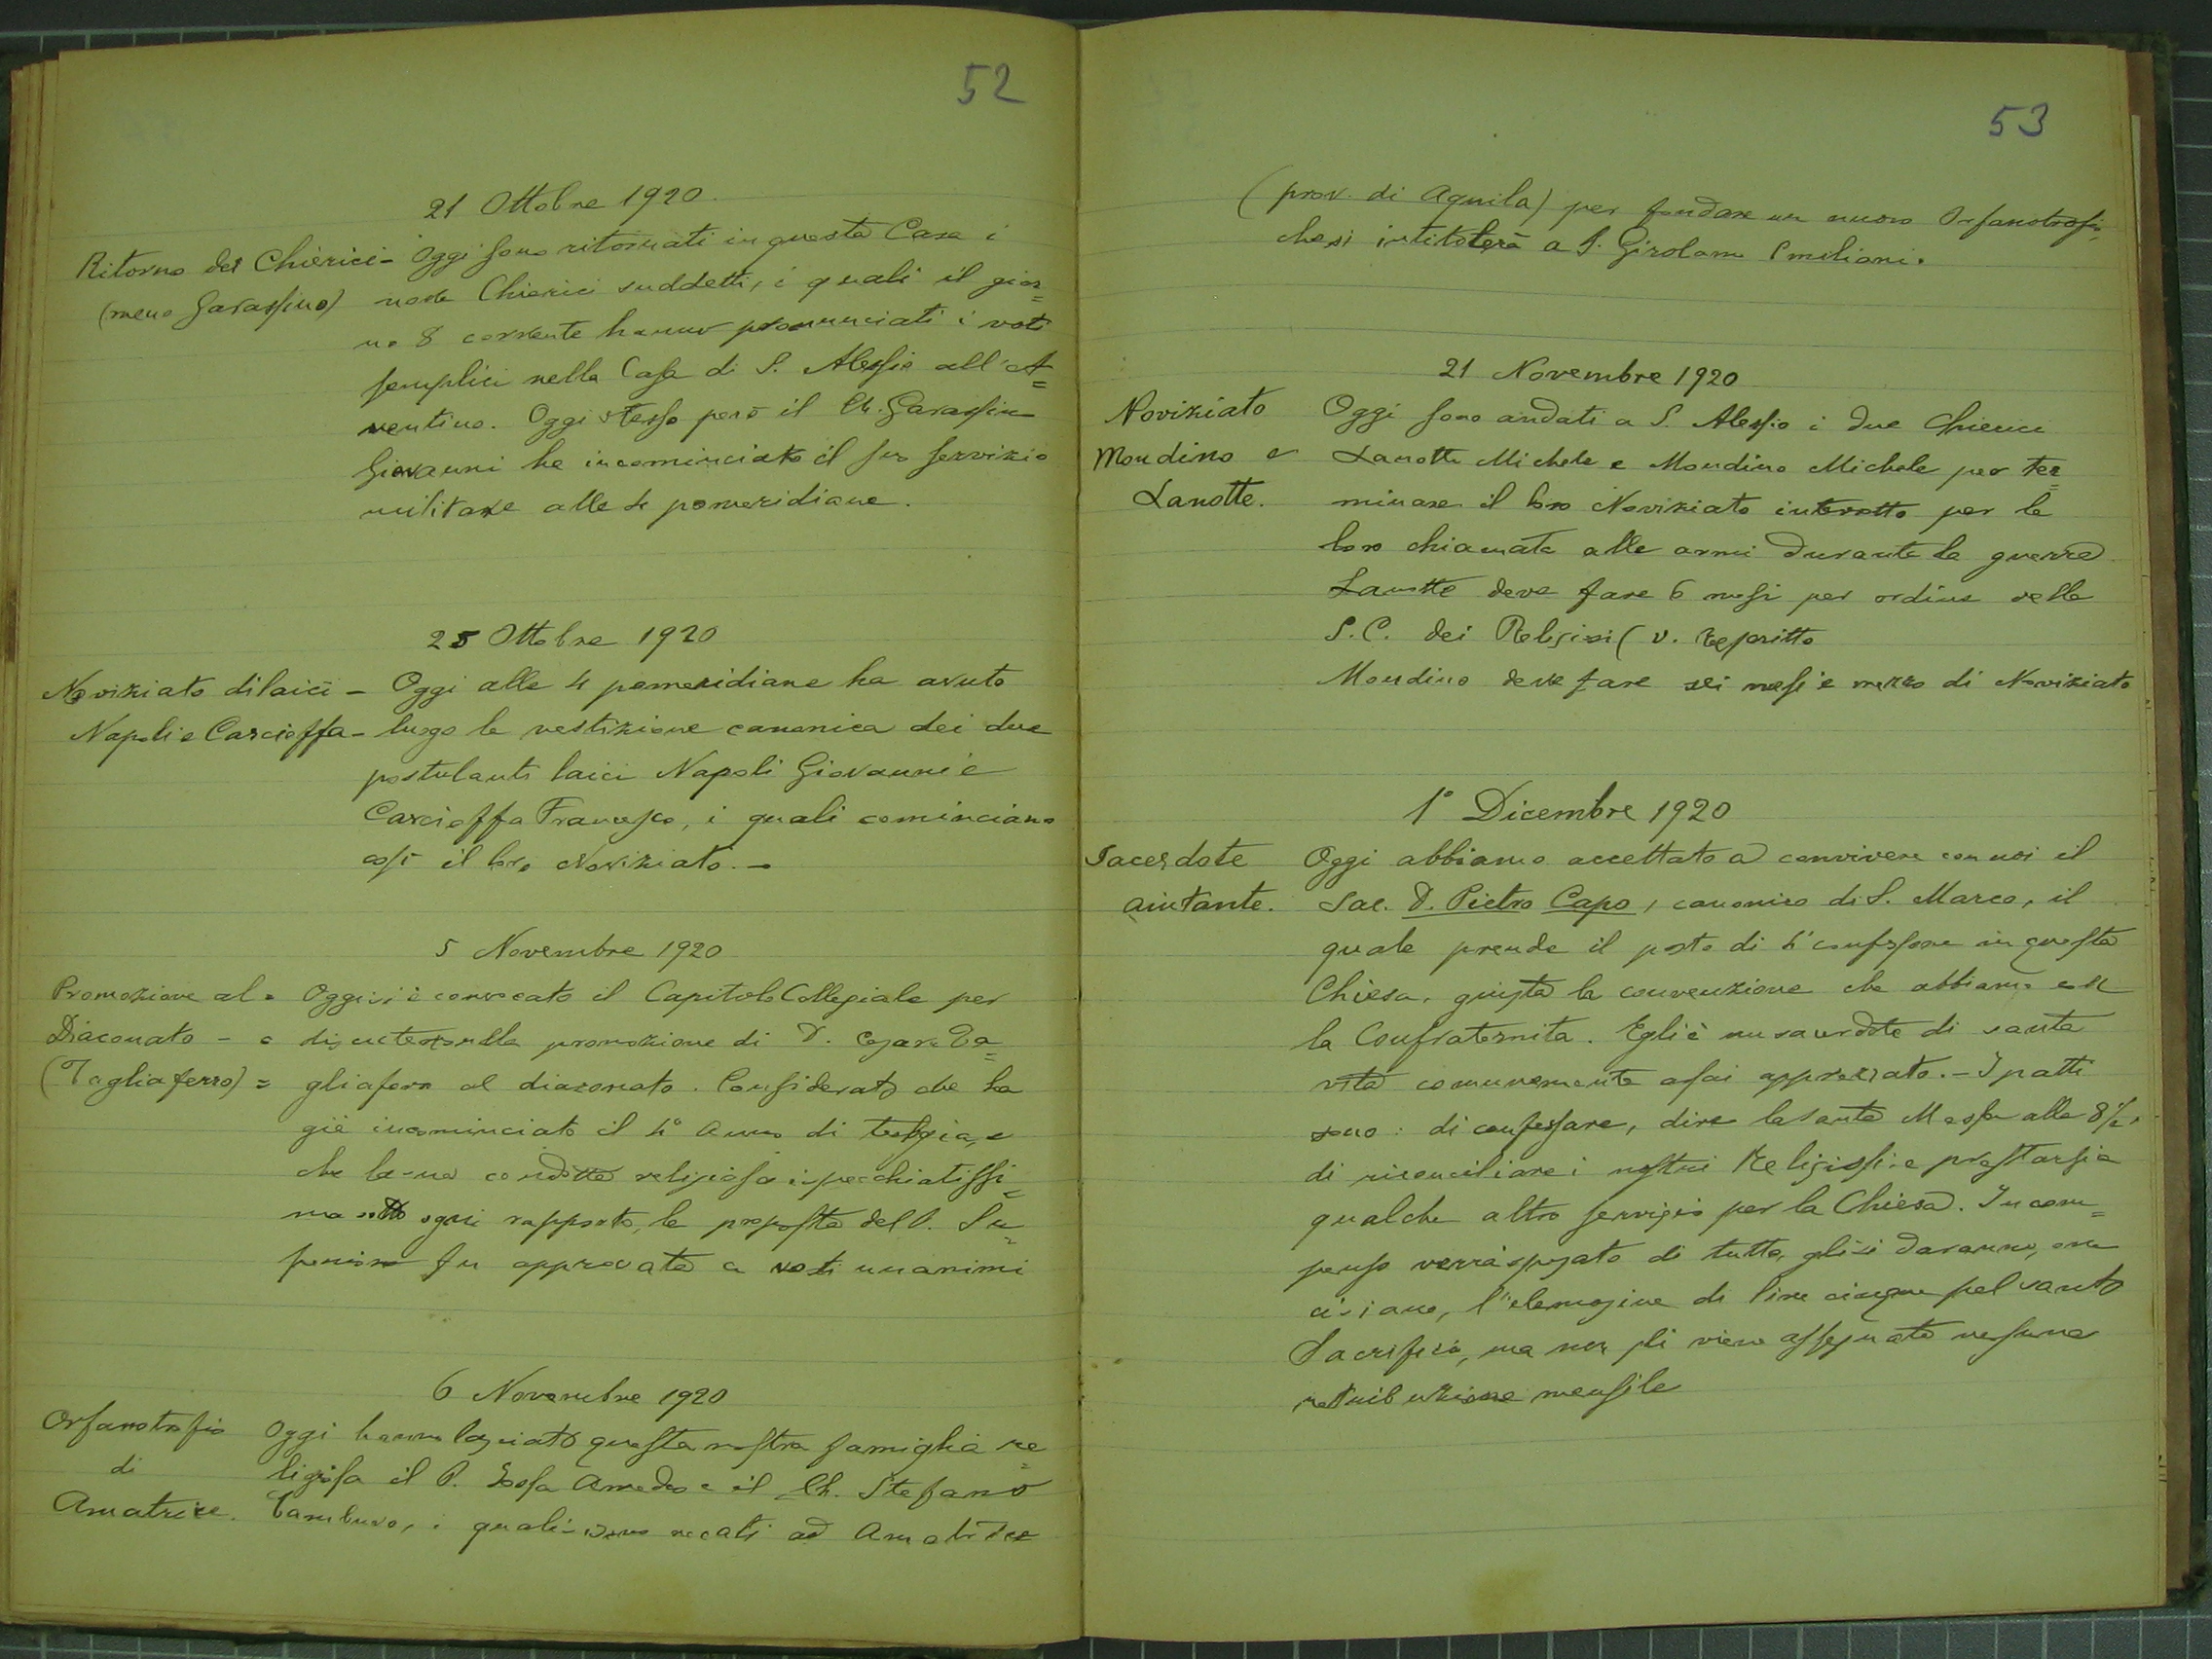 52
21 Ottobre 1920.
Ritorno dei Chierici - Oggi sono ritornati in questa Casa i
(meno Garassino) nove Chierici suddetti, i quali il gior=
no 8 corrente hanno pronunciati i voti
semplici nella Casa di S. Alessio all'A=
ventino. Oggi stesso però il Ch. Garassino
Giovanni ha incominciato il suo servizio
militare alle 4 pomeridiane.
25 Ottobre 1920
Noviziato di laici - Oggi alle 4 pomeridiane ha avuto
Napoli e Carcioffa - luogo la vestizione canonica dei due
postulanti laici Napoli Giovanni e
Carcioffa Francesco, i quali cominciano
così il loro Noviziato. -
5 Novembre 1920
Promozione al = Oggi si è convocato il Capitolo Collegiale per
Diaconato - = discutere sulla promozione di D. Cesare Ta=
(Tagliaferro) = gliaferro al diaconato. Considerato che ha
già incominciato il 4° Anno di teologia, e
che la sua condotta religiosa è specchiatissi=
ma sotto ogni rapporto, la proposta del P. Su=
periore fu approvata a voti unanimi
6 Novembre 1920
Orfanotrofio Oggi hanno lasciato questa nostra famiglia re=
di ligiosa il P. Amedeo e il Ch. Stefano
Amatrice. Tamburo, i quali si sono recati ad Amatrice
53
(prov. di Aquila) per fondare un nuovo Orfanotrofio,
che si intitolerà a S. Girolamo Emiliani.
21 Novembre 1920
Noviziato Oggi sono andati a S. Alessio i due Chierici
Mondino e Lanotte Michele e Mondino Michele per ter=
Lanotte. minare il loro Noviziato interotto per la
loro chiamata alle armi durante la guerra.
Lanotte deve fare 6 mesi per ordine della
S.C. dei Religiosi (v. Rescritto
Mondino deve fare sei mesi e mezzo di Noviziato
1° Dicembre 1920
Sacerdote Oggi abbiamo accettato a convivere con noi il
aiutante. Sac. D. Pietro Capo, canonico di S. Marco, il
quale prende il posto di 4° confessore in questa
Chiesa, giusta la convenzione che abbiamo con
la Confraternita. Egli è un sacerdote di santa
vita comunemente assai apprezzato. - I patti
sono: di confessare, dire la santa Messa alle 8½,
di riconciliare i nostri Religiosi e prestarsi a
qualche altro servigio per la Chiesa. In com=
penso verrà spesato di tutto, gli si daranno, ove
ci siano, l'elemosina di lire cinque pel santo
Sacrificio, ma non gli viene assegnata nessuna
retribuzione mensile